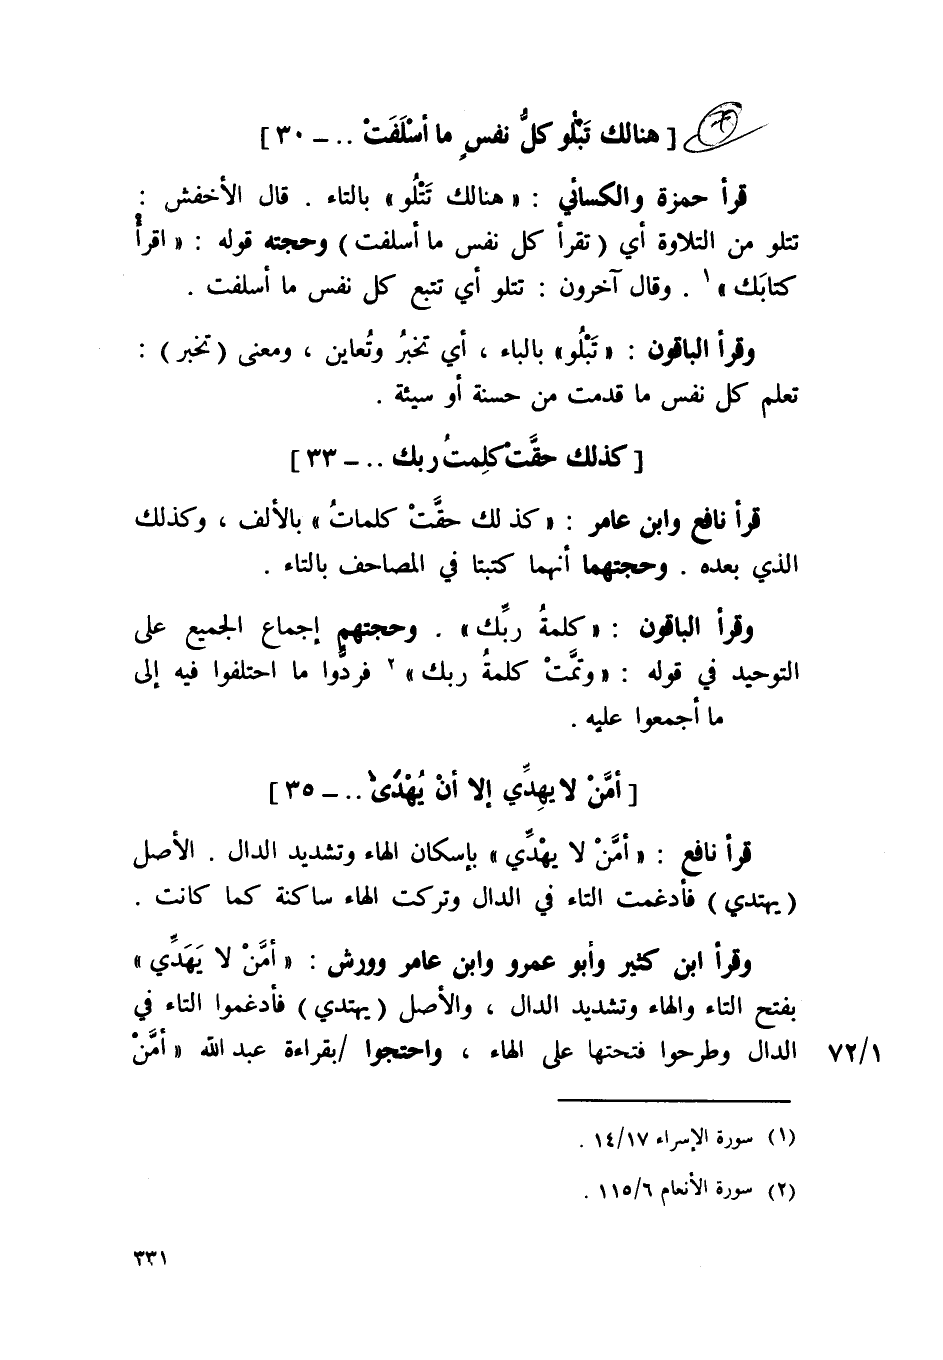 [ هنالك تَبْلُو كلُّ نفسٍ ما أسْلَفَتْ .. – ٣٠ ]
قرأ حمزة والكسائي : « هنالك تَتْلُو » بالتاء . قال الأخفش :
تتلو من التلاوة أي ( تقرأ كل نفس ما أسلفت ) وحجته قوله : « اقرأْ
كتابَك » ١ . وقال آخرون : تتلو أي تتبع كل نفس ما أسلفت .
وقرأ الباقون : « تَبْلُو » بالباء ، أي تخبرُ وتُعاين ، ومعنى ( تخبر ) :
تعلم كل نفس ما قدمت من حسنة أو سيئة .
[ كذلك حقَّتْ كلِمتُ ربك .. – ٣٣ ]
قرأ نافع وابن عامر : « كذلك حقَّتْ كلماتُ » بالألف ، وكذلك
الذي بعده . وحجتهما أنهما كتبتا في المصاحف بالتاء .
وقرأ الباقون : « كلمةُ ربِّك » . وحجتهم إجماع الجميع على
التوحيد في قوله : « وتمَّتْ كلمةُ ربك » ٢ فردُّوا ما احتلفوا فيه إلى
ما أجمعوا عليه .
[ أمَّنْ لا يهِدِّي إلا أنْ يُهْدَىٰ .. – ٣٥ ]
قرأ نافع : « أمَّنْ لا يهْدِّي » بإسكان الهاء وتشديد الدال . الأصل
( يهتدي ) فأدغمت التاء في الدال وتركت الهاء ساكنة كما كانت .
وقرأ ابن كثير وأبو عمرو وابن عامر وورش : « أمَّنْ لا يَهَدِّي »
بفتح التاء والهاء وتشديد الدال ، والأصل ( يهتدي ) فأدغموا التاء في
الدال وطرحوا فتحتها على الهاء ، واحتجوا / بقراءة عبد الله « أمَّنْ
٧٢/١
(١) سورة الإسراء ١٤/١٧ .
(٢) سورة الأنعام ١١٥/٦ .
٣٣١